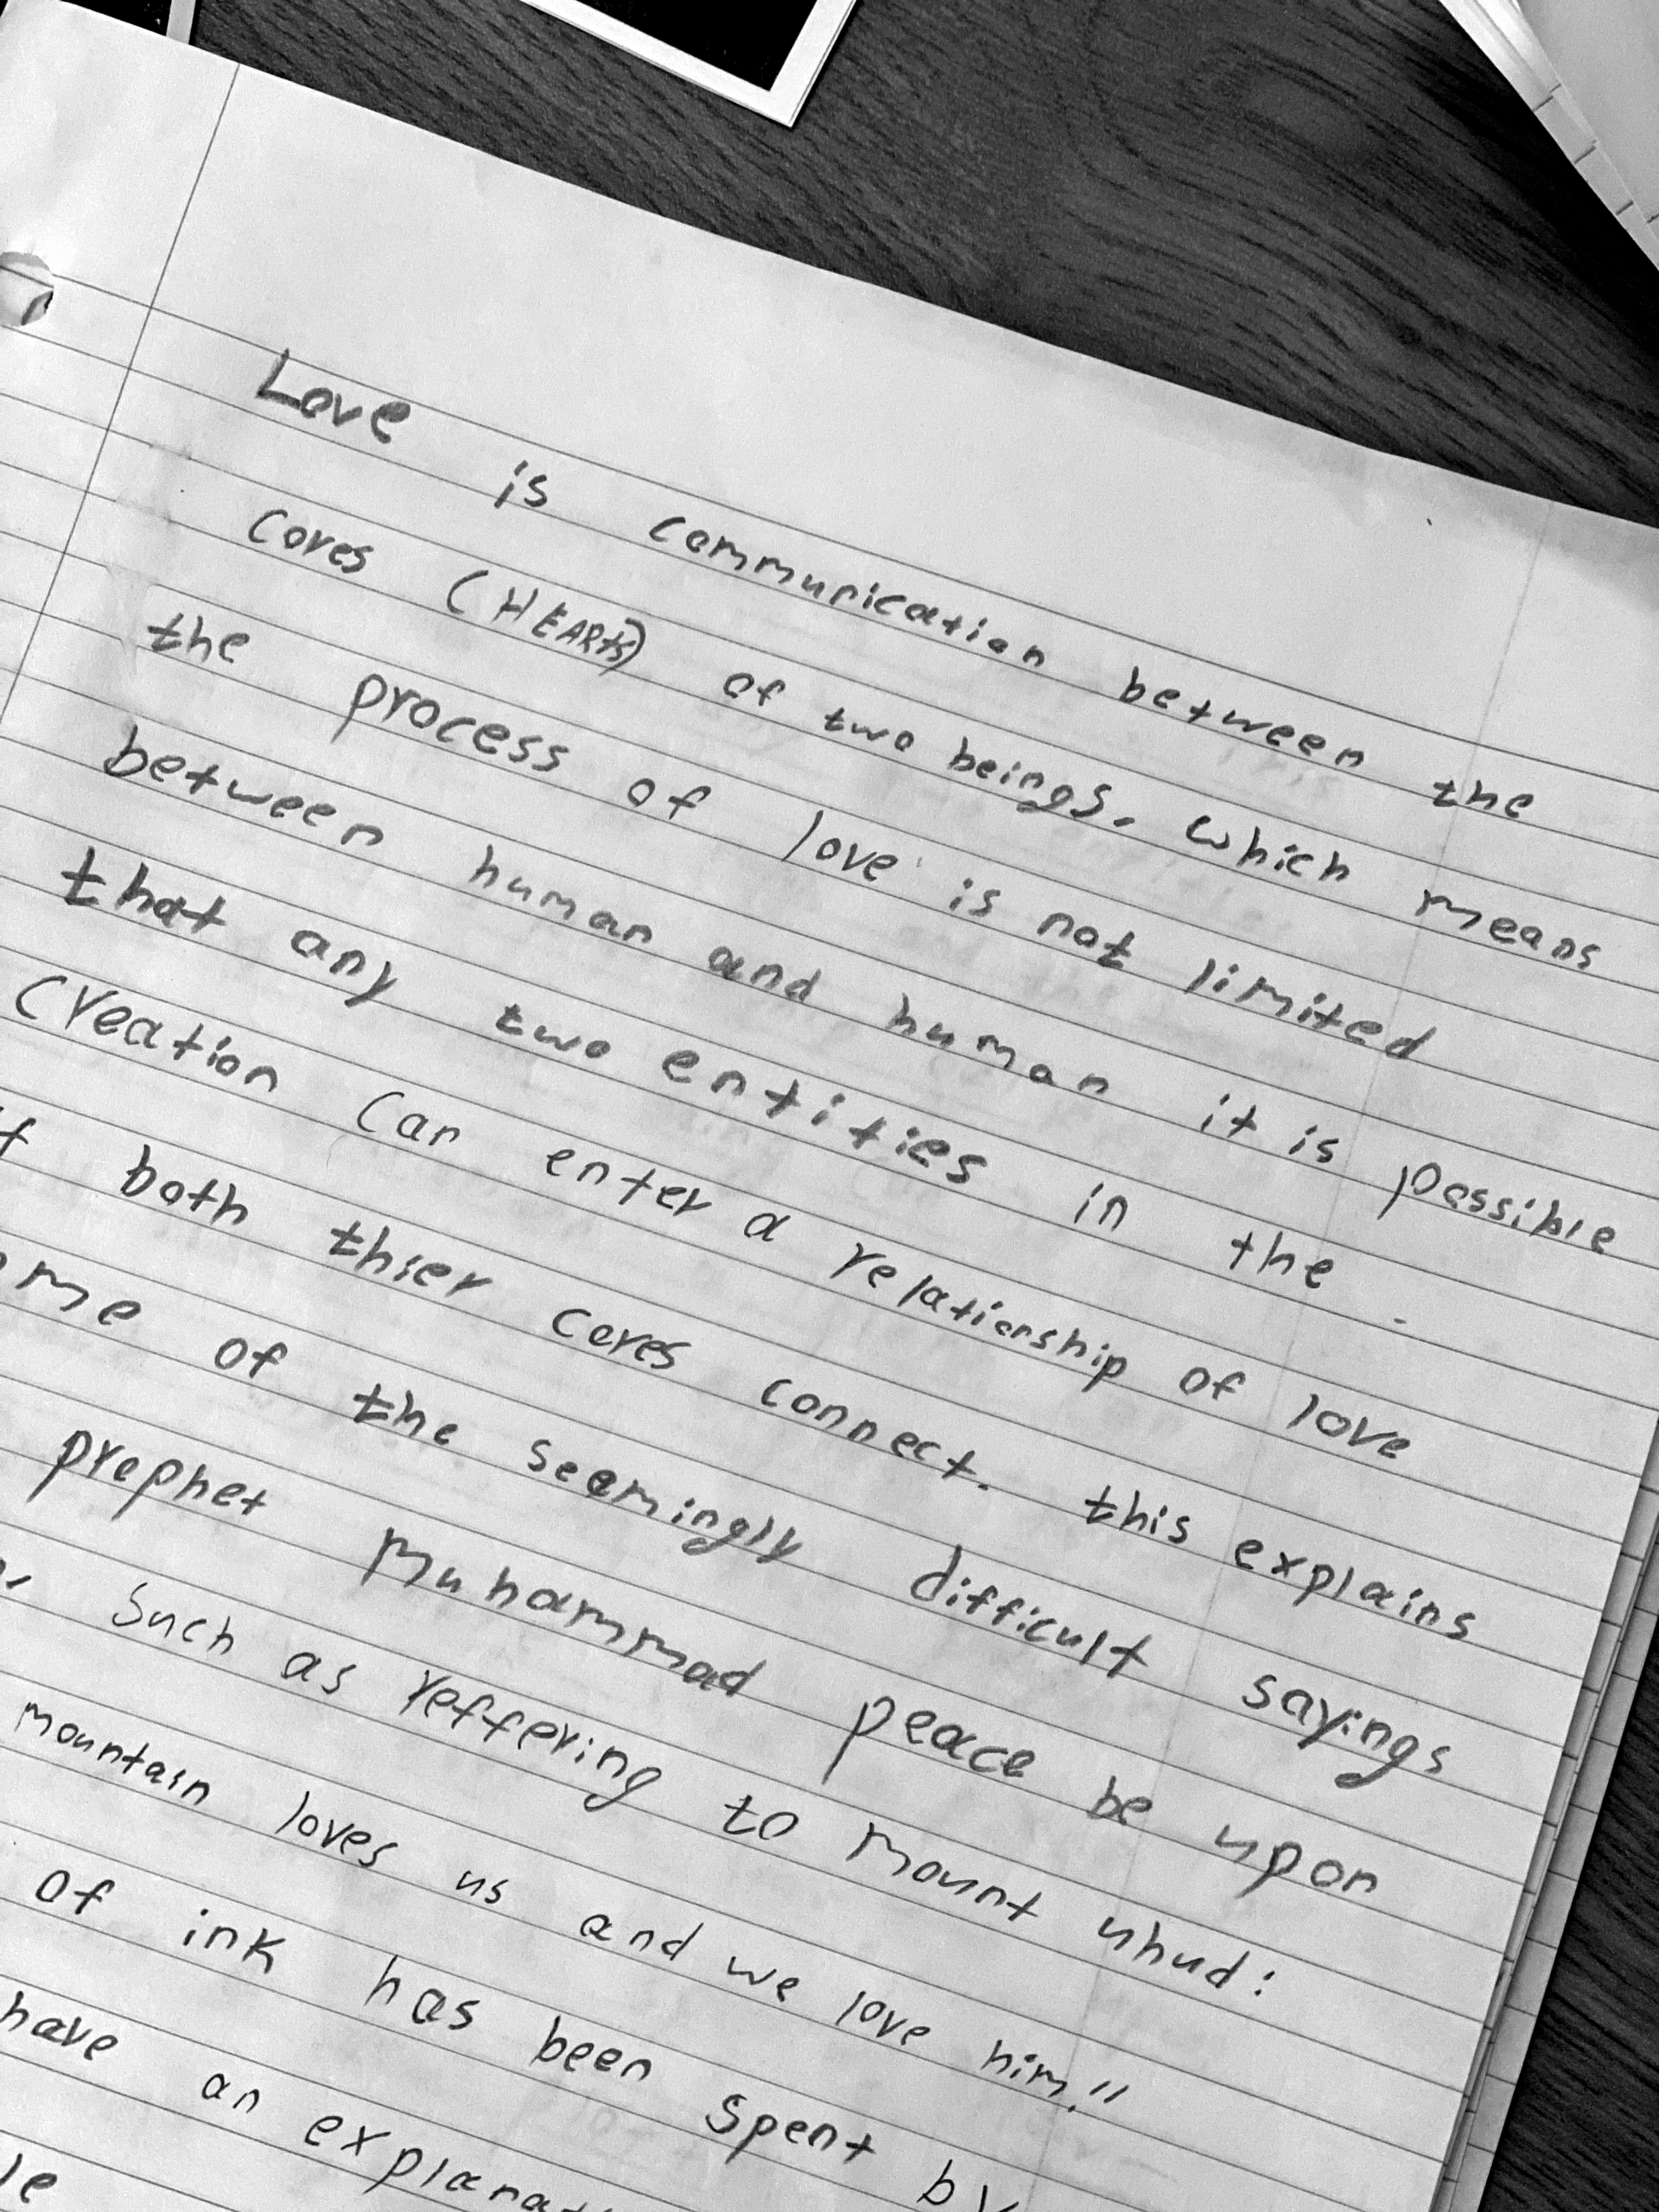 Love is communication between the
cores (HEARts) of two beings. which means
the process of love is not limited
between human and human it is possible
that any two entities in the
Creation Can enter a relationship of love
both thier cores connect. this explains
of the seemingly difficult sayings
prophet Muhammad peace be upon
Such as reffering to mount uhud:
mountain loves us and we love him!"
of ink has been spent by
have an